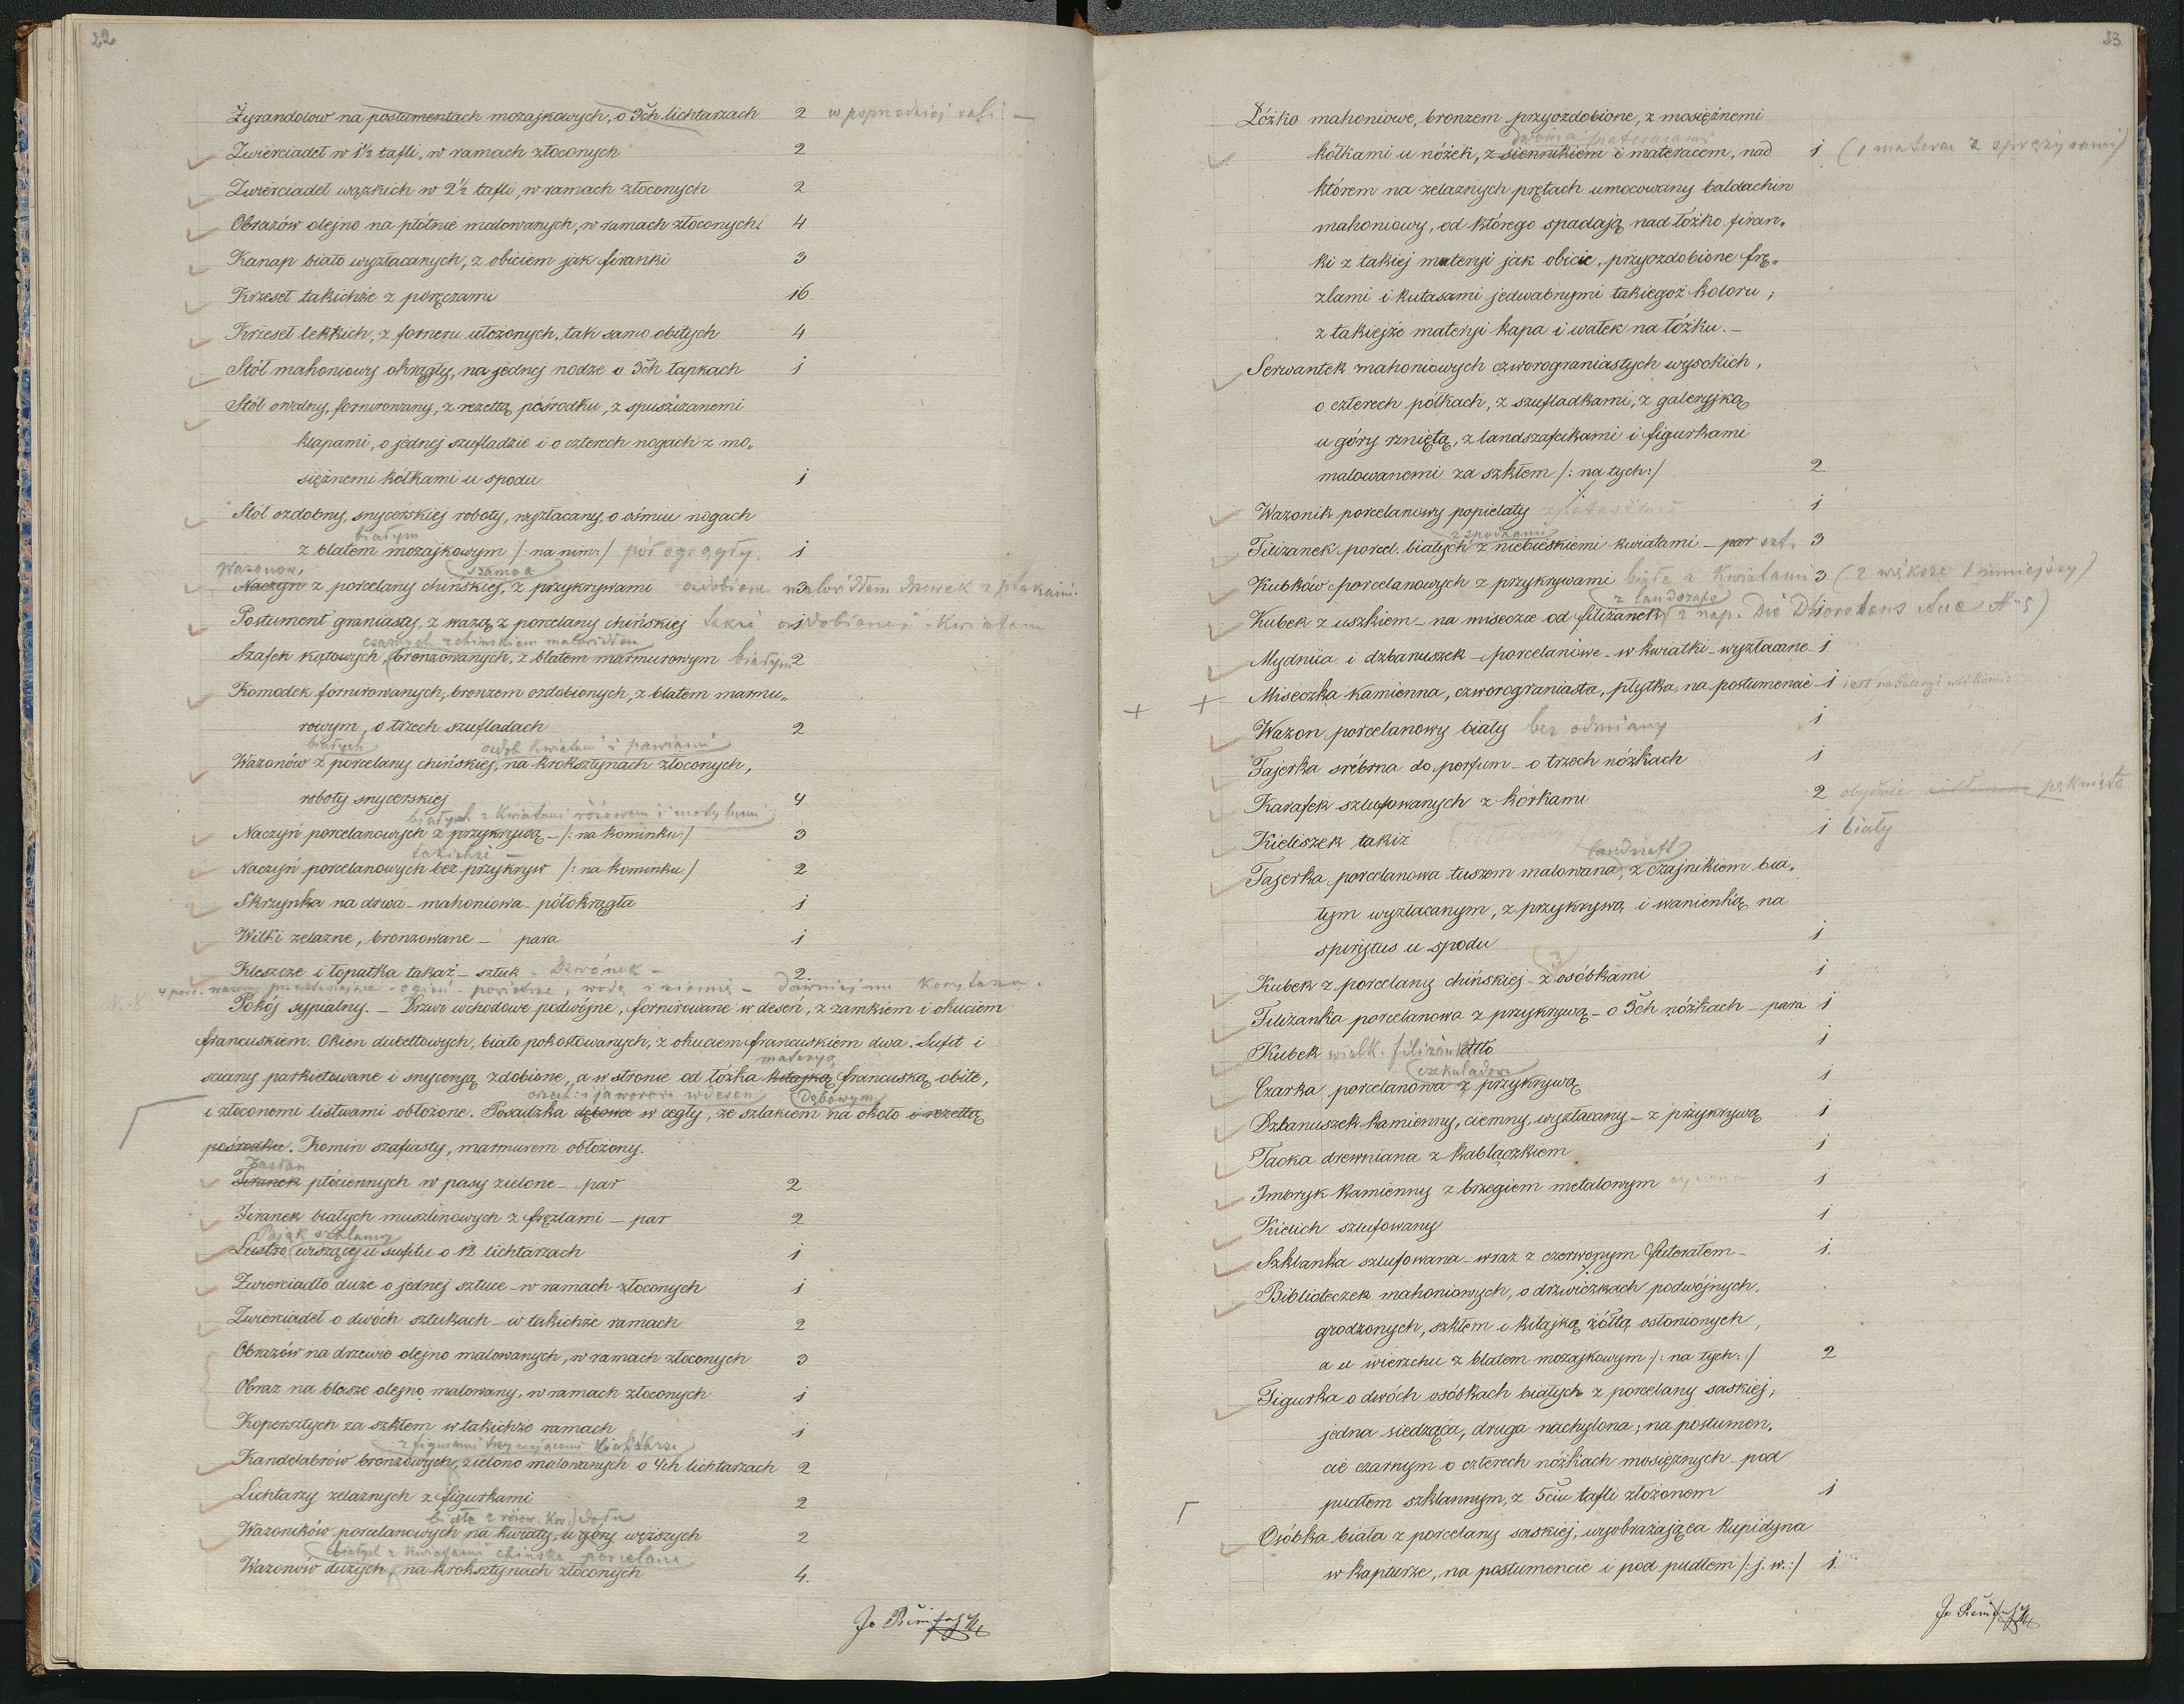 22
Żyrandolow na postumentach mozajkowych, o 3ch lichtarzach 2 w poprzedniej sali —
Zwierciadeł w 1½ tafli, w ramach złoconych 2
Zwierciadeł wązkich w 2½ tafli, w ramach złoconych 2
Obrazów olejno na płótnie malowanych, w ramach złoconych 4
Kanap biało wyzłacanych, z obiciem jak firanki 3
Krzeseł takichże z poręczami 16
Krzeseł lekkich, z forneru ułożonych, tak samo obitych 4
Stół mahoniowy okrągły, na jednej nodze o 3ch łapkach 1
Stół owalny, fornirowany, z rezettą pośrodku, z spuszczanemi
klapami, o jednej szufladzie i o czterech nogach z mo„
siężnemi kółkami u spodu 1
Stół ozdobny, snycerskiej roboty, wyzłacany, o ośmiu nogach
białym
z blatem mozajkowym /: na nim :/ pół ogrągły 1
Wazonow, szamoa
Naczyń z porcelany chińskiej, z przykrywami ozdobione malowidłem drzewek z ptakami 3
Postument graniasty, z wazą z porcelany chińskiej takiż ozdobiony kwiatami 1
czarnych z chinskiem malowidłem
Szafek kątowych, bronzowanych, z blatem marmurowym białym 2
Komodek fornirowanych, bronzem ozdobionych, z blatem marmu„
rowym, o trzech szufladach 2
białych ozdob. kwiatami i pawiami
Wazonów z porcelany chińskiej, na kroksztynach złoconych,
roboty snycerskiej 4
białych z kwiatami różowemi i motylami
Naczyń porcelanowych z przykrywą — /: na kominku :/ 3
takichże —
Naczyń porcelanowych bez przykryw /: na kominku :/ 2
Skrzynka na drwa — mahoniowa — półokrągła 1
Wilki żelazne, bronzowane — para 1
Kleszcze i łopatka takaż — sztuk — Dzwónek — 2
4 porc. wazony przedstawiające ogień - powietrze, wodę i ziemię — dawniej na Korytarzu.
Pokój sypialny. — Drzwi wchodowe podwójne, fornirowane w deseń, z zamkiem i okuciem
francuskiem. Okien dubeltowych, biało pokostowanych, z okuciem francuskiem dwa. Sufit i
materyą
ściany parkietowane i snycerszą zdobione, a w stronie od łóżka kitajką francuską obite,
orzech. i jaworowe w deseń dębowym
i złoconemi listwami obłożone. Posadzka dębowa w cegły, ze szlakiem na około i rezettą
pośrodku. Komin szafiasty, marmurem obłożony.
Zasłon
Firanek płóciennych w pasy zielone — par 2
Firanek białych muszlinowych z fręzlami — par 2
Pająk szklanny
Lustro wiszące u sufitu o 12 lichtarzach 1
Zwierciadło duże o jednej sztuce — w ramach złoconych 1
Zwierciadeł o dwóch sztukach — w takichże ramach 2
Obrazów na drzewie olejno malowanych, w ramach złoconych 3
Obraz na blasze olejno malowany, w ramach złoconych 1
Kopersztych za szkłem w takichże ramach 1
z figurami trzymającemi lichtarze
Kandelabrów bronzowych, zielono malowanych o 4ch lichtarzach 2
Lichtarzy żelaznych z figurkami 2
białe z różow. kw. dołu
Wazoników porcelanowych na kwiaty, u góry węższych 2
białych z kwiatami chińska porcelana
Wazonów dużych, na kroksztynach złoconych 4.
23
Łóżko mahoniowe, bronzem przyozdobione, z mosiężnemi
dwoma materacami
kółkami u nóżek, z siennikiem i materacem, nad 1 (1 materac z sprężynami)
którem na żelaznych prętach umocowany baldachin
mahoniowy, od którego spadają nad łóżko firan„
ki z takiej materyi jak obicie, przyozdobione frę„
zlami i kutasami jedwabnymi takiegoż koloru;
z takiejże materyi kapa i wałek na łóżku. —
Serwantek mahoniowych czworograniastych wysokich,
o czterech półkach, z szufladkami, z galeryjką
u góry rzniętą, z landszafcikami i figurkami
malowanemi za szkłem /: na tych :/ 2.
Wazonik porcelanowy popielaty 1
z spodkami
Filiżanek porcel. białych z niebieskiemi kwiatami — par szt. 3
Kubków porcelanowych z przykrywami białe z kwiatami 3 (2 większe 1 mniejszy)
z landszaf.
Kubek z uszkiem — na miseczce od filiżanek z nap. Die Aue N. 5) 1
Mydnica i dzbanuszek — porcelanowe — w kwiatki — wyzłacane 1
Miseczka kamienna, czworograniasta, płytka, na postumencie — 1 jest na Galeryi
Wazon porcelanowy biały bez odmiany 1
Fajerka srébrna do perfum — o trzech nóżkach 1
Karafek szlufowanych z korkami 2 obydwie pęknięta
Kieliszek takiż 1 biały
landszaft
Fajerka porcelanowa tuszem malowana, z czajnikiem bia„
łym wyzłacanym, z przykrywą i wanienką na
spirytus u spodu 1
3
Kubek z porcelany chińskiej — z osóbkami 1
Filiżanka porcelanowa z przykrywą — o 3ch nóżkach — para 1
Kubek wielk. filiżank. dtto 1
czekuladowa
Czarka porcelanowa z przykrywą 1
Dzbanuszek kamienny, ciemny, wyzłacany — z przykrywą 1
Tacka drewniana z kabłączkiem 1
Imbryk kamienny z brzegiem metalowym 1
Kielich szlufowany 1
Szklanka szlufowana — wraz z czerwonym futerałem — 1.
Biblioteczek mahoniowych, o drzwiczkach podwójnych,
grodzonych, szkłem i kitajką żółtą osłonionych,
a u wierzchu z blatem mozajkowym /: na tych :/ 2
Figurka o dwóch osóbkach białych z porcelany saskiej;
jedna siedząca, druga nachylona; na postumen„
cie czarnym o czterech nóżkach mosiężnych — pod
pudłem szklannym, z 5ciu tafli złożonem 1
Osóbka biała z porcelany saskiej, wyobrażająca Kupidyna
w kapturze, na postumencie i pod pudłem /: j. w. :/ 1.